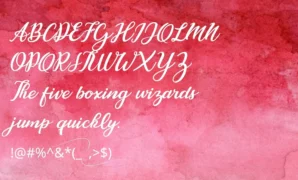 ABCDEFGHIJOLMN
OPQRSTUWXYZ
The five boxing wizards
jump quickly.
!@#%^&*(_ ,>$)